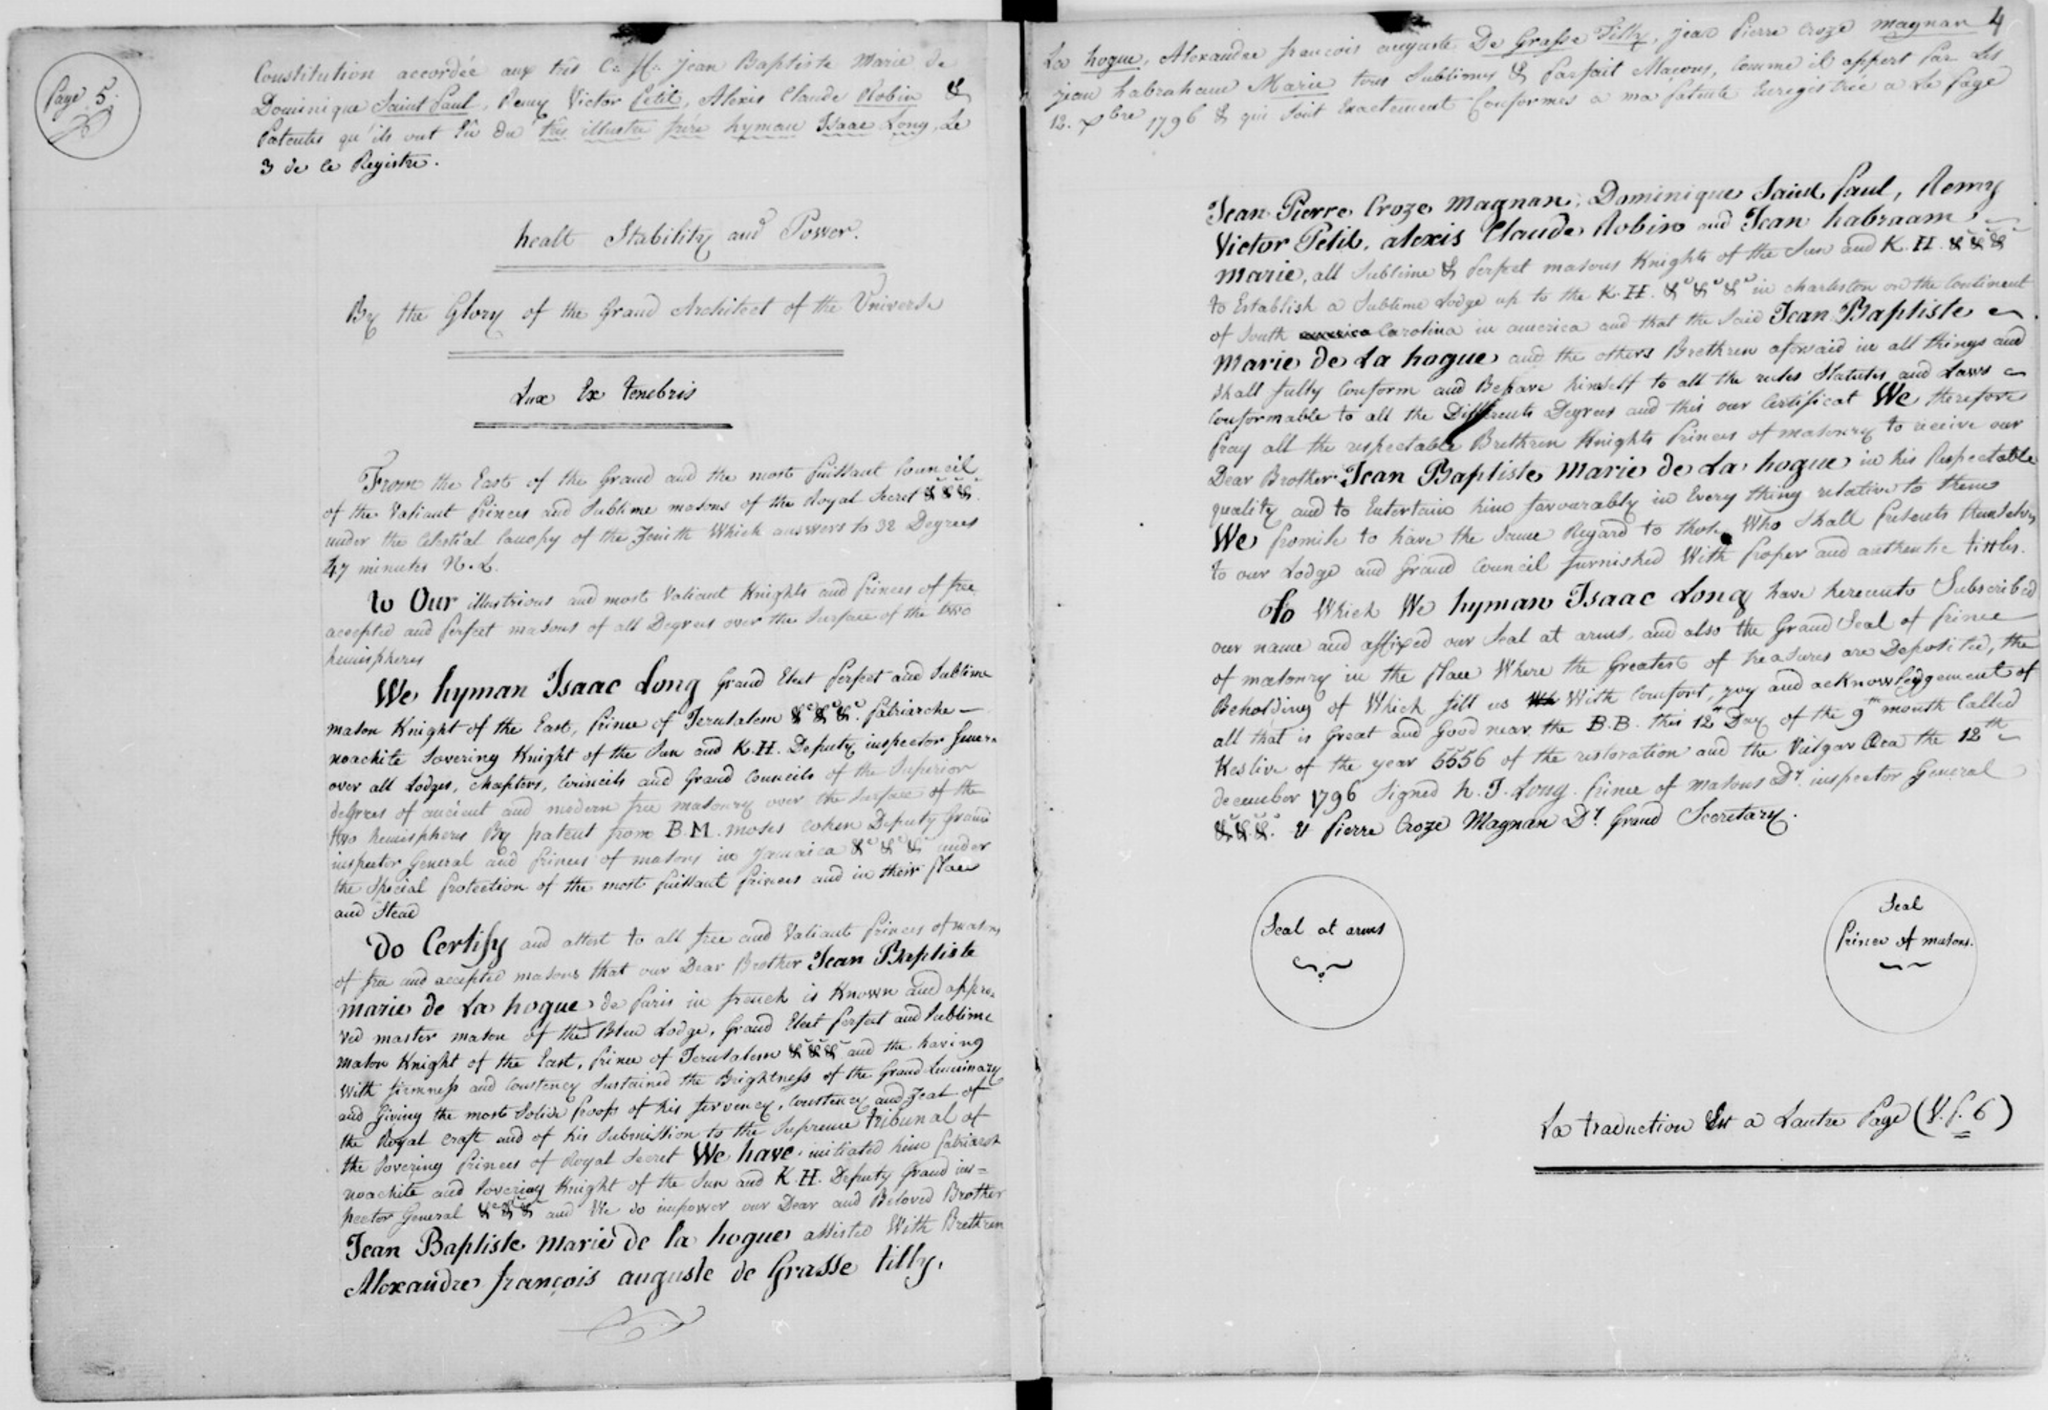 Page 5.
Constitution accordée aux très C∴ f∴ jean Baptiste Marie de
Dominique Saint Paul, Remy Victor Petit, Alexis Claude Robin &
Patentes qu'ils ont du très illustre frère hyman Isaac Long, Le
3 de ce Registre.
healt Stability and Power.
By the Glory of the Grand Architect of the Universe
Lux Ex tenebris
From the East of the Grand and the most puissant Council
of the Valiant Princes and Sublime masons of the Royal Secret &c &c &c.
under the Celestial Canopy of the Zenith Which answers to 32 Degrees
47 minutes N. L.
to Our illustrious and most Valiant Knights and Princes of free
accepted and perfect masons of all Degrees over the Surface of the two
hemispheres
We hyman Isaac Long Grand Elect perfect and Sublime
mason Knight of the East, Prince of Jerusalem &c &c &c. patriarche
noachite Sovering Knight of the Sun and K.H. Deputy inspector Gener.
over all Lodges, chapters, Councils and Grand Councils of the Superior
degrees of ancient and modern free masonry over the surface of the
two hemispheres By patent from B.M. moses cohen Deputy Grand
inspector General and princes of masons in jamaica &c &c &c under
the special protection of the most puissant princes and in their place
and Stead
Do Certify and attest to all free and Valiant princes of masons
of free and accepted masons that our Dear Brother Jean Baptiste
marie de La hogue de paris in french is Known and appro-
ved master mason of the Blue Lodge, Grand Elect perfect and Sublime
mason Knight of the East, prince of Jerusalem &c &c &c and the having
With firmness and Constency Sustained the Brightness of the Grand Luminary
and Giving the most Solide proofs of his fervency, Constency and Zeal of
the Royal craft and of his Submission to the Supreme tribunal of
the Sovering Princes of Royal Secret We have initiated him patriarch
noachite and Sovering Knight of the Sun and K.H. Deputy Grand ins=
pector General &c &c &c and We do impower our Dear and Beloved Brother
Jean Baptiste marie de la hogue assisted With Brethren
Alexandre françois auguste de Grasse tilly,
4
La hogue, Alexandre francois auguste De Grasse Tilly, jean Pierre Croze magnan
jean habraham Marie tous Sublimes & Parfait Maçons, Comme il appert Par Les
12. Xbre 1796 & qui Sont Exactement Conformes a ma patente Enregistrée a La page
Jean Pierre Croze Magnan, Dominique Saint Paul, Remy
Victor Petit, alexis Claude Robin and Jean habraam
marie, all Sublime & perfect masons Knights of the Sun and K.H. &c &c &c
to Establish a Sublime Lodge up to the K.H. &c &c &c in charleston on the Continent
of South Carolina in america and that the Said Jean Baptiste
Marie de La hogue and the others Brethren aforsaid in all things and
shall fully Conform and Behave himself to all the rules Statutes and Laws
Conformable to all the Differents Degrees and this our Certificat We therefore
pray all the respectable Brethren Knights Princes of masonry to receive our
Dear Brother Jean Baptiste Marie de La hogue in his Respectable
quality and to Entertain him favourably in Every thing relative to them
We promise to have the Same Regard to those Who Shall presents themselves
to our Lodge and Grand Council furnished With proper and authentic tittles.
To Which We hyman Isaac Long have hereunto Subscribed
our name and affixed our Seal at arms, and also the Grand Seal of prince
of masonry in the place Where the Greatest of treasures are Deposited, the
Beholding of Which fill us With Comfort, joy and acknowledgement of
all that is Great and Good near the B.B. this 12th Day of the 9th month Called
Keslive of the year 5556 of the restoration and the Vulgar Æra the 12th
december 1796 Signed h. J. Long prince of masons Dy. inspector General
&c &c &c. & Pierre Croze Magnan Dy. Grand Secretary.
Seal at arms
Seal
Prince of masons.
La traduction Est a Lautre Page (V. p. 6)